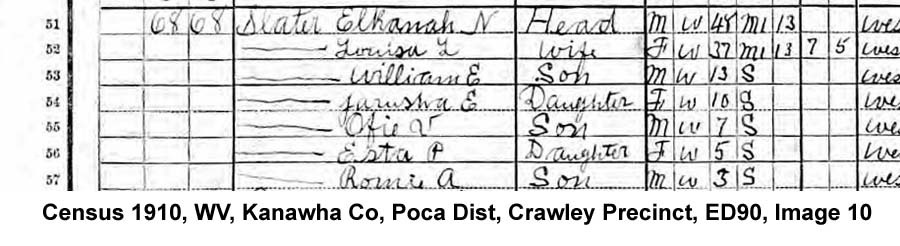 51 68 68 Slater Elkanah N Head M W 48 M1 13
52 —— Louisa L Wife F W 37 M1 13 7 5
53 —— William E Son M W 13 S
54 —— Jarusha E Daughter F W 10 S
55 —— Ofie V Son M W 7 S
56 —— Esta P Daughter F W 5 S
57 —— Romie A Son M W 3 S
Census 1910, WV, Kanawha Co, Poca Dist, Crawley Precinct, ED90, Image 10